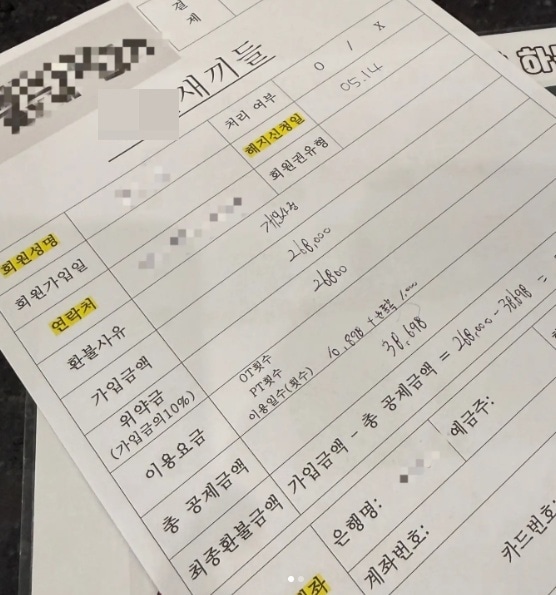 결
제
새끼들
처리 여부 O / X
해지신청일 05.14
회원권유형
회원성명
회원가입일
연락처
환불사유 개인사정
가입금액 268,000
위약금
(가입금의10%)
26800
이용요금
OT횟수
PT횟수
이용일수(횟수)
10,898
총 공제금액 38,698
최종환불금액 가입금액 - 총 공제금액 = 268,000 - 38,698 =
은행명: 예금주:
계좌번호:
카드번호:
하